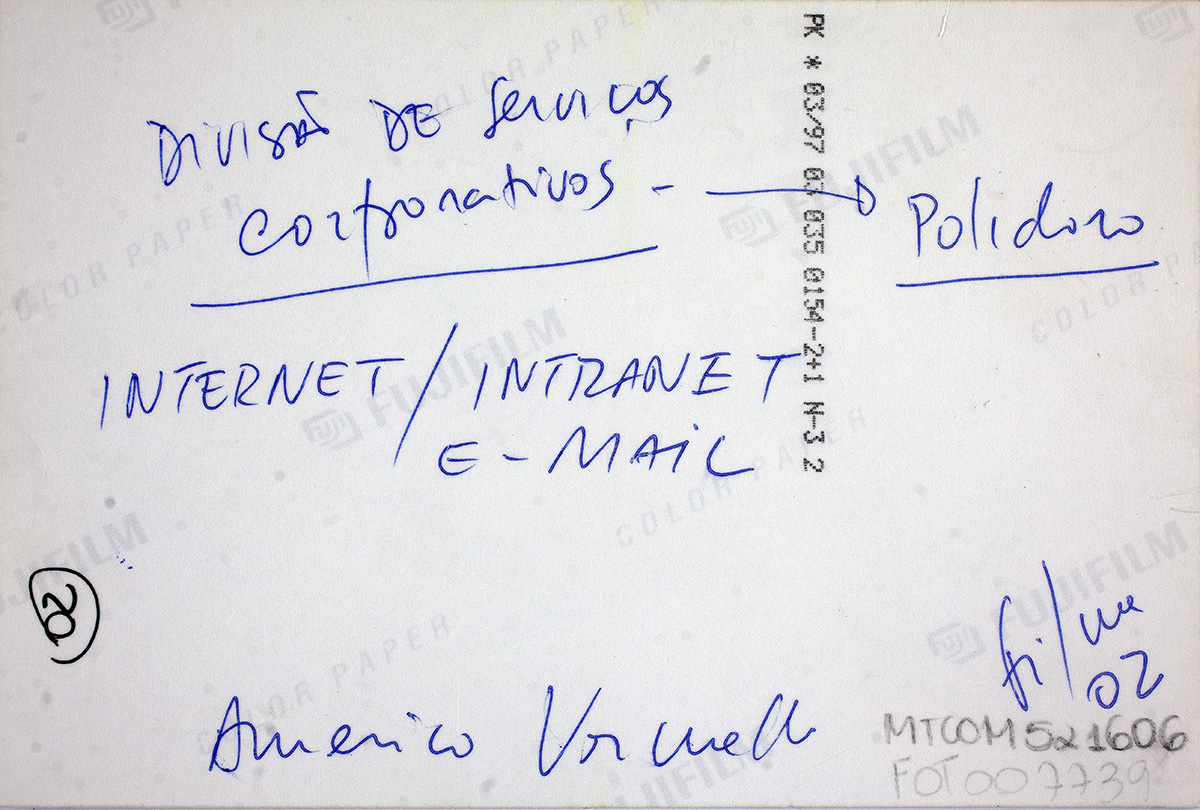 DIVISÃO DE Serviços
Corporativos - → Polidoro
INTERNET/INTRANET
E-MAIL
02
filme
02
Americo Vermelho
MTCOM521606
FOT007739
PK * 03/97 03 035 0154-2+1 N-3 2
FUJIFILM
COLOR PAPER